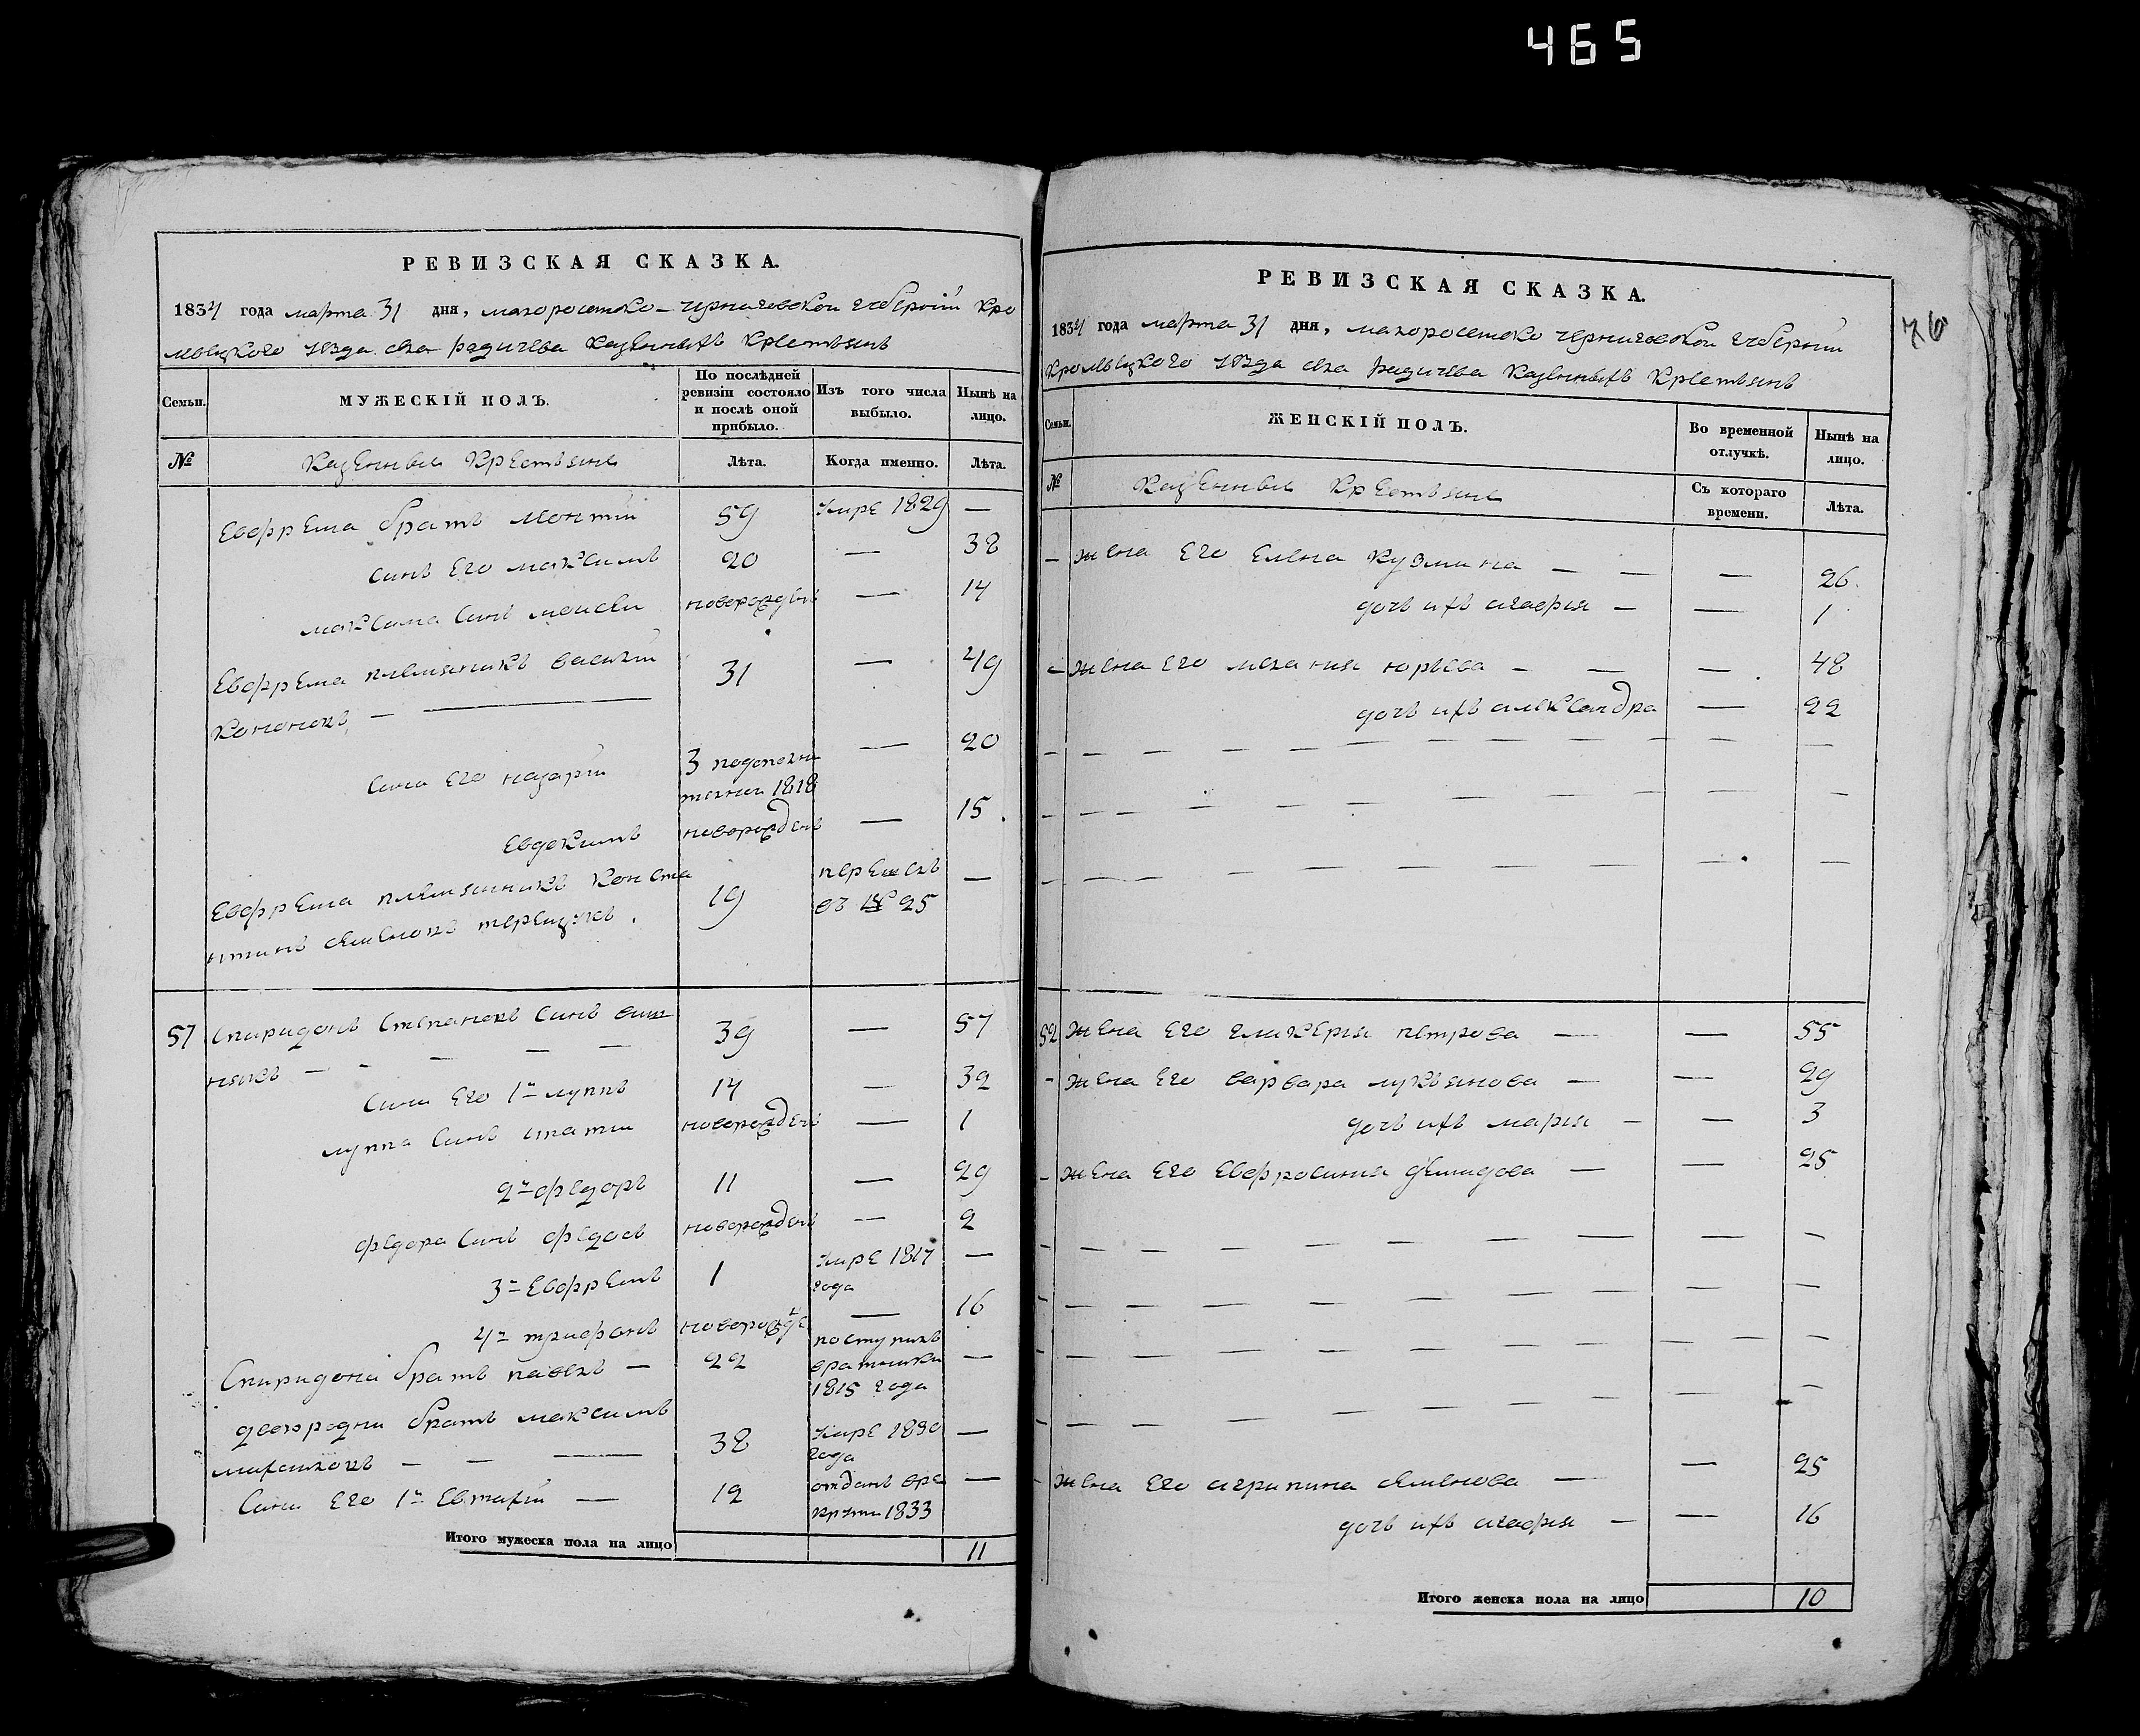 465
РЕВИЗСКАЯ СКАЗКА.
1834 года марта 31 дня, малоросийско-черниговской губернии Кро
левецкого уезда села радичева Казенныхъ Крестьянъ
Семьи.
МУЖЕСКІЙ ПОЛЪ.
По послѣдней ревизіи состояло и послѣ оной прибыло.
Изъ того числа выбыло.
Нынѣ на лицо.
№
Казенныи Крестьяни
Лѣта.
Когда именно.
Лѣта.
Евфрема братъ Леонтий 59 умре 1829 —
синъ его максимъ 20 — 38
максима синъ моисеи новорожденъ — 14
Евфрема племяникъ василий 31 — 49
Кононовъ, — —
сини его назарий 3 — 20
1818
Евдокимъ новорожденъ — 15
Евфрема племянникъКонста 19 перешелъ —
нтинъ семеновъ терещукъ. 25
57 Спиридонъ Степановъ синъ 39 — 57
— — — —
сини его 1й луппъ 14 — 32
луппа синъ новорожденъ — 1
2й федоръ 11 — 29
федора синъ федосъ новорожденъ — 2
3й Евфремъ 1 умре 1817 —
года
4й трифонъ новорожде — 16
Спиридона братъ павелъ — 22 поступилъ —
вратники
1815 года
двоюродни братъ максимъ 38 умре 1830 —
михайловъ — — — года
сини его 1й Евтихий — 12 отданъ вре —
круты 1833
Итого мужеска пола на лицо 11
РЕВИЗСКАЯ СКАЗКА.
1834 года марта 31 дня, малоросийско черниговской губернии
Кролевецкого уезда села радичева Казенныхъ Крестьянъ
76
Семьи.
ЖЕНСКІЙ ПОЛЪ.
Во временной отлучкѣ.
Нынѣ на лицо.
№
Казенныи Крестьяни
Съ котораго времени.
Лѣта.
— жена его Елена Кузмина — — — 26
дочь ихъ агафия — — 1
— жена его мелания юрьева — — — 48
дочь ихъ александра — 22
52 жена его гликерия петрова — — 55
— жена его варвара лукьянова — — 29
дочь ихъ мария — — 3
— жена его Евфросиния демидова — — 25
— жена его агрипина семенова — — 25
дочь ихъ агафия — — 16
Итого женска пола на лицо 10